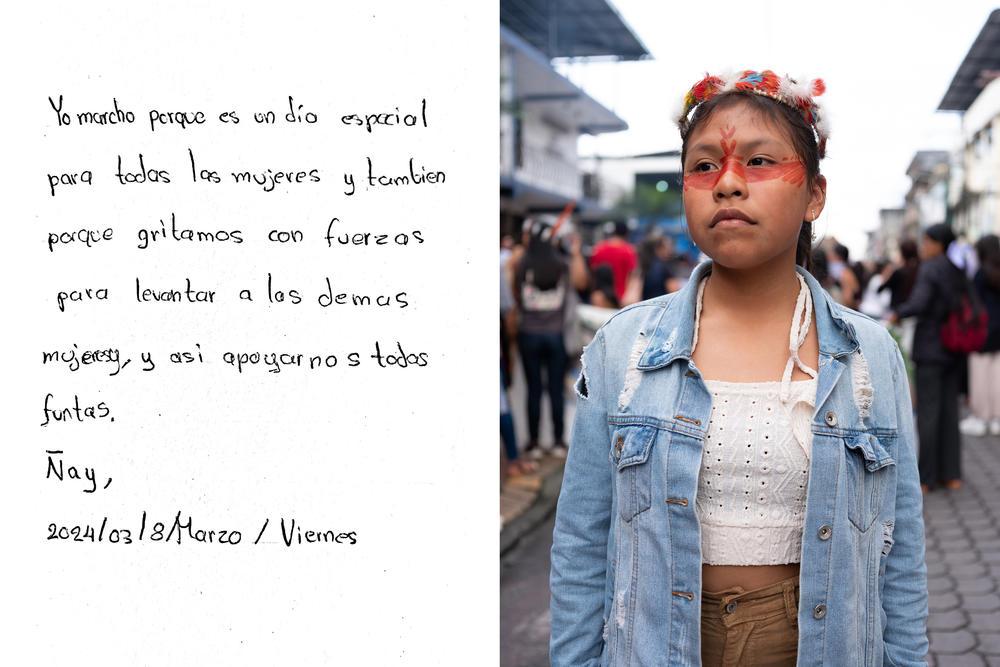 Yo marcho porque es un día especial
para todas las mujeres y tambien
porque gritamos con fuerzas
para levantar a las demas
mujeres, y asi apoyarnos todas
juntas.
Ñay,
2024/03/8/Marzo / Viernes